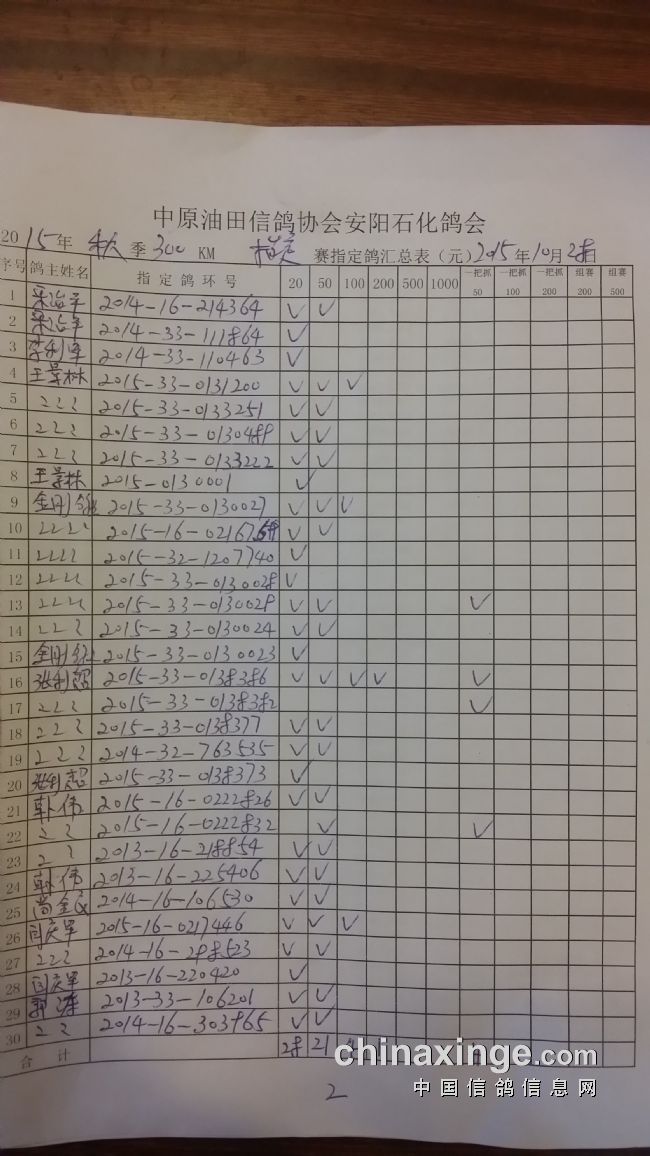 中原油田信鸽协会安阳石化鸽会
2015年 秋 季 300 KM 指定 赛指定鸽汇总表（元）2015年10月28日
序号 鸽主姓名 指定鸽环号 20 50 100 200 500 1000 一把抓50 一把抓100 一把抓200 组赛200 组赛500
1 2014-16-214364 ✓ ✓
2 2014-33-111864 ✓
3 李利军 2014-33-110463 ✓
4 王景林 2015-33-0131200 ✓ ✓ ✓
5 〃 2015-33-0133251 ✓ ✓
6 〃 2015-33-0130489 ✓ ✓
7 〃 2015-33-0133222 ✓ ✓
8 王景林 2015-0130001 ✓
9 2015-33-0130027 ✓ ✓ ✓
10 〃 2015-16- ✓ ✓
11 〃 2015-32-1207740 ✓
12 〃 2015-33-0130028 ✓
13 〃 2015-33-0130029 ✓ ✓ ✓
14 〃 2015-33-0130024 ✓ ✓
15 2015-33-0130023 ✓
16 张利超 2015-33-0138386 ✓ ✓ ✓ ✓ ✓
17 〃 2015-33-0138382 ✓
18 〃 2015-33-0138377 ✓ ✓
19 〃 2014-32-763535 ✓ ✓
20 张利超 2015-33-0138373 ✓
21 韩伟 2015-16-0222826 ✓ ✓
22 〃 2015-16-0222832 ✓ ✓
23 〃 2013-16-218854 ✓ ✓
24 韩伟 2013-16-225406 ✓ ✓
25 2014-16-106530 ✓ ✓
26 闫庆军 2015-16-0217446 ✓ ✓ ✓
27 〃 2014-16-298523 ✓ ✓
28 闫庆军 2013-16-220420 ✓
29 郭涛 2013-33-106201 ✓ ✓
30 〃 2014-16-303965 ✓ ✓
合计 28 21 4
chinaxinge.com
中国信鸽信息网
2